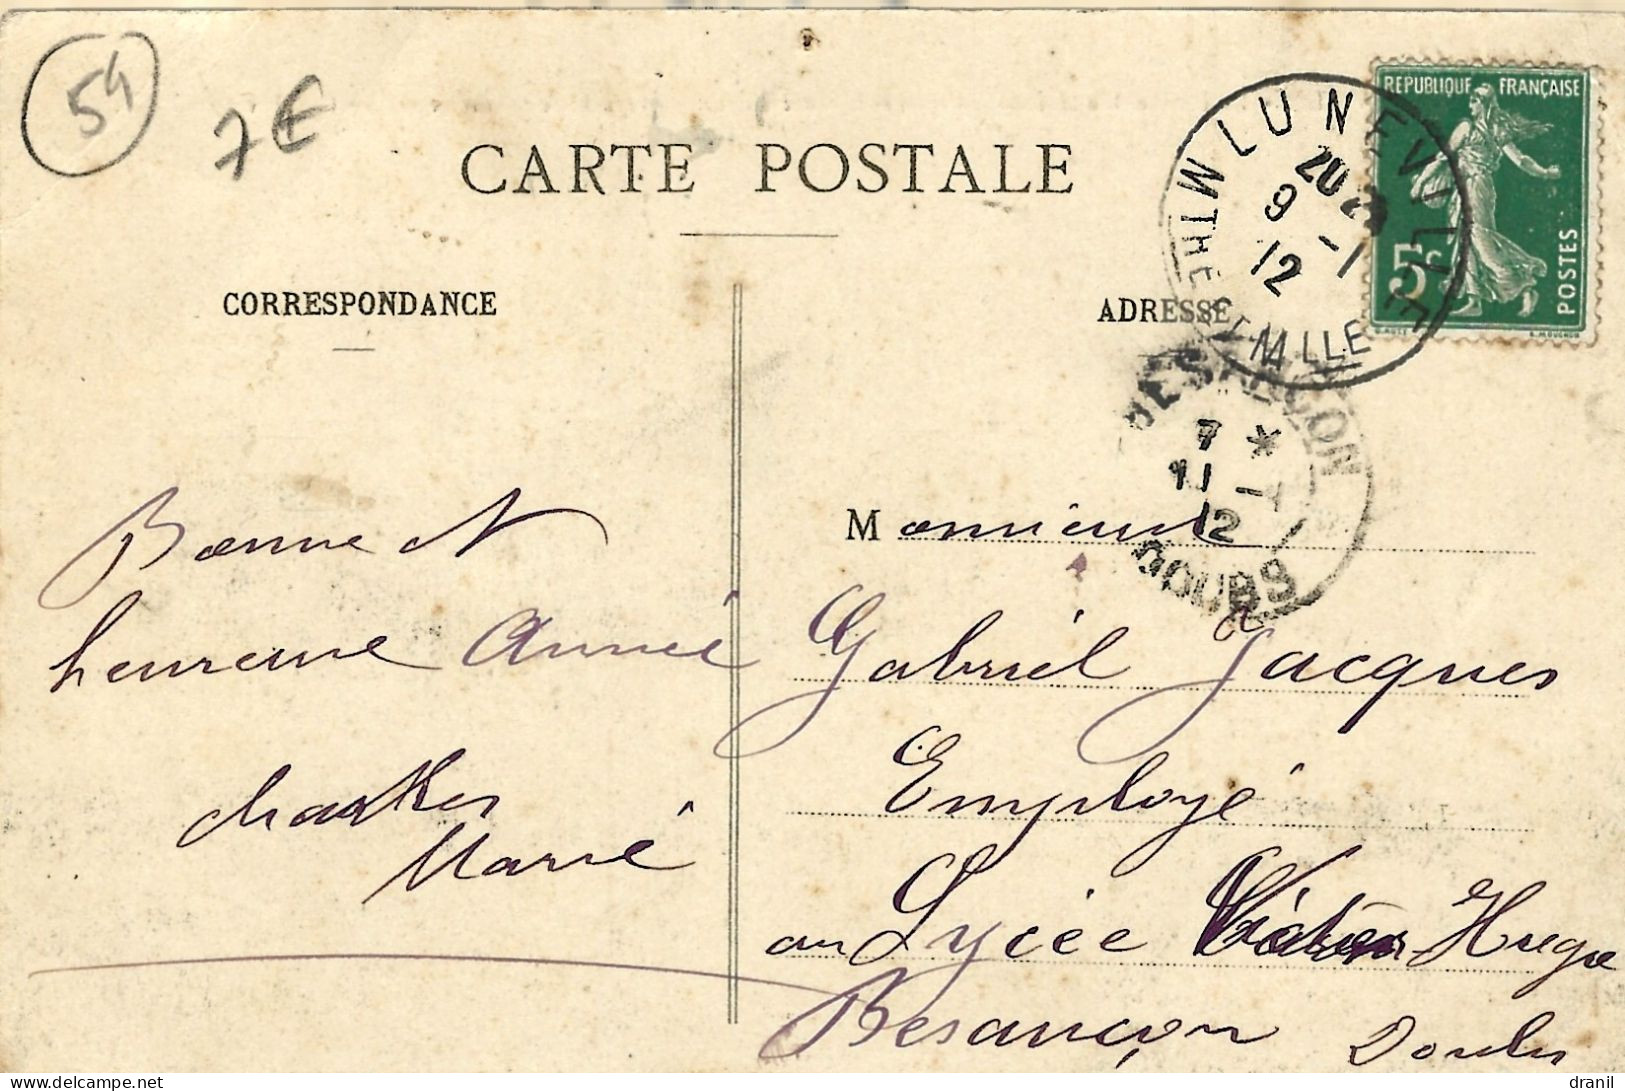 54
7€
CARTE POSTALE
CORRESPONDANCE
ADRESSE
REPUBLIQUE FRANÇAISE
5c
POSTES
O. ROTY
E. MOUCHON
LUNEVILLE
20
9 - 1
12
MTHE ET MLLE
BESANÇON
7 *
11 - 1
12
DOUBS
Bonne et
heureuse Année
Charles
Marie
Monsieur
Gabriel Jacques
Employé
au Lycée Victor Hugo
Besançon Doubs
delcampe.net
dranil